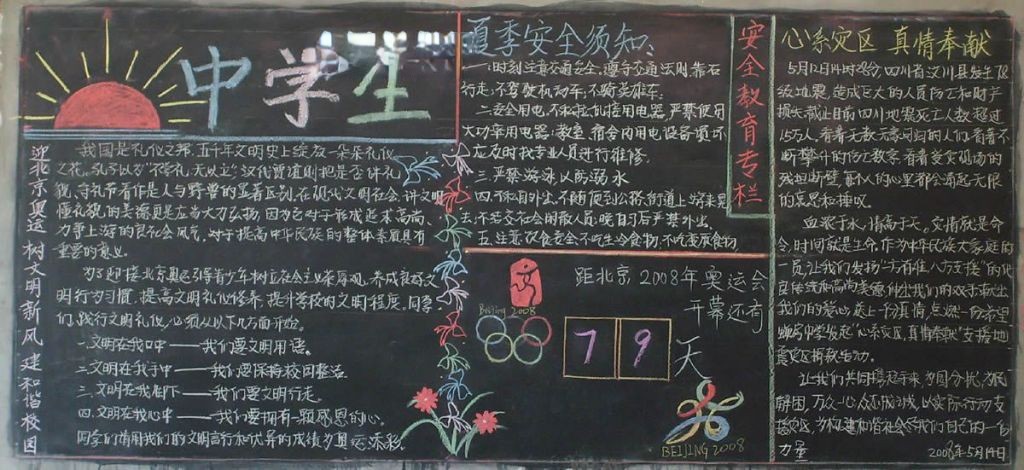 中学生
迎北京奥运 树文明新风 建和谐校园
我国是礼仪之邦,五千年文明史上绽放一朵朵礼仪
之花。孔子以为"不学礼,无以立";汉代贾谊则把是否讲礼
貌、守礼节看作是人与野兽的显著区别,在现代文明社会,讲文明
懂礼貌的美德更是应当大力弘扬,因为它对于形成追求高尚、
力攀上游的良社会风气,对于提高中华民族的整体素质具有
重要的意义。
为了迎接北京奥运引导青少年树立社会主义荣辱观,养成良好文
明行为习惯,提高文明礼仪修养,提升学校的文明程度。同学
们,践行文明礼仪,必须从以下几方面开始。
一.文明在我口中——我们要文明用语。
二.文明在我手中——我们要保持校园整洁。
三.文明在我脚下——我们要文明行走。
四.文明在我心中——我们要拥有一颗感恩的心。
同学们请用我们的文明言行和优异的成绩为奥运添彩。
夏季安全须知:
一.时刻注意交通安全,遵守交通法则靠右
行走,不驾驶机动车,不骑英雄车。
二.安全用电,不私拉乱接用电器,严禁使用
大功率用电器;教室、宿舍内用电设备损坏
应及时找专业人员进行维修。
三.严禁游泳,以防溺水
四.不私自外出,不随便到公路、街道上等来
去;不结交社会闲散人员;晚自习后严禁外出。
五.注意饮食安全不吃生冷食物,不吃变质食物
安全教育专栏
距北京2008年奥运会
开幕还有
79天
Beijing 2008
BEIJING 2008
心系灾区 真情奉献
5月12日14时28分,四川省汶川县发生7.8
级地震,造成巨大的人员伤亡和财产
损失截止目前四川地震死亡人数超过
1.5万人,看着无数无家可归的人们,看着不
断攀升的伤亡数字,看着受灾现场的
残垣断壁,每个人的心里都会涌起无限
的哀思和悲叹。
血浓于水,情高于天,灾情就是命
令,时间就是生命,作为中华民族大家庭的
一员让我们发扬"一方有难,八方支援"的优
良传统和高尚美德伸出我们的双手献出
我们的爱心,
"心系灾区,真情奉献"支援地
震灾区捐款活动。
让我们共同携起手来,为国分忧,为民
解困,万众一心众志成城,以实际行动支
援灾区,为构建和谐社会尽我们自己的一份
力量
2008年5月19日